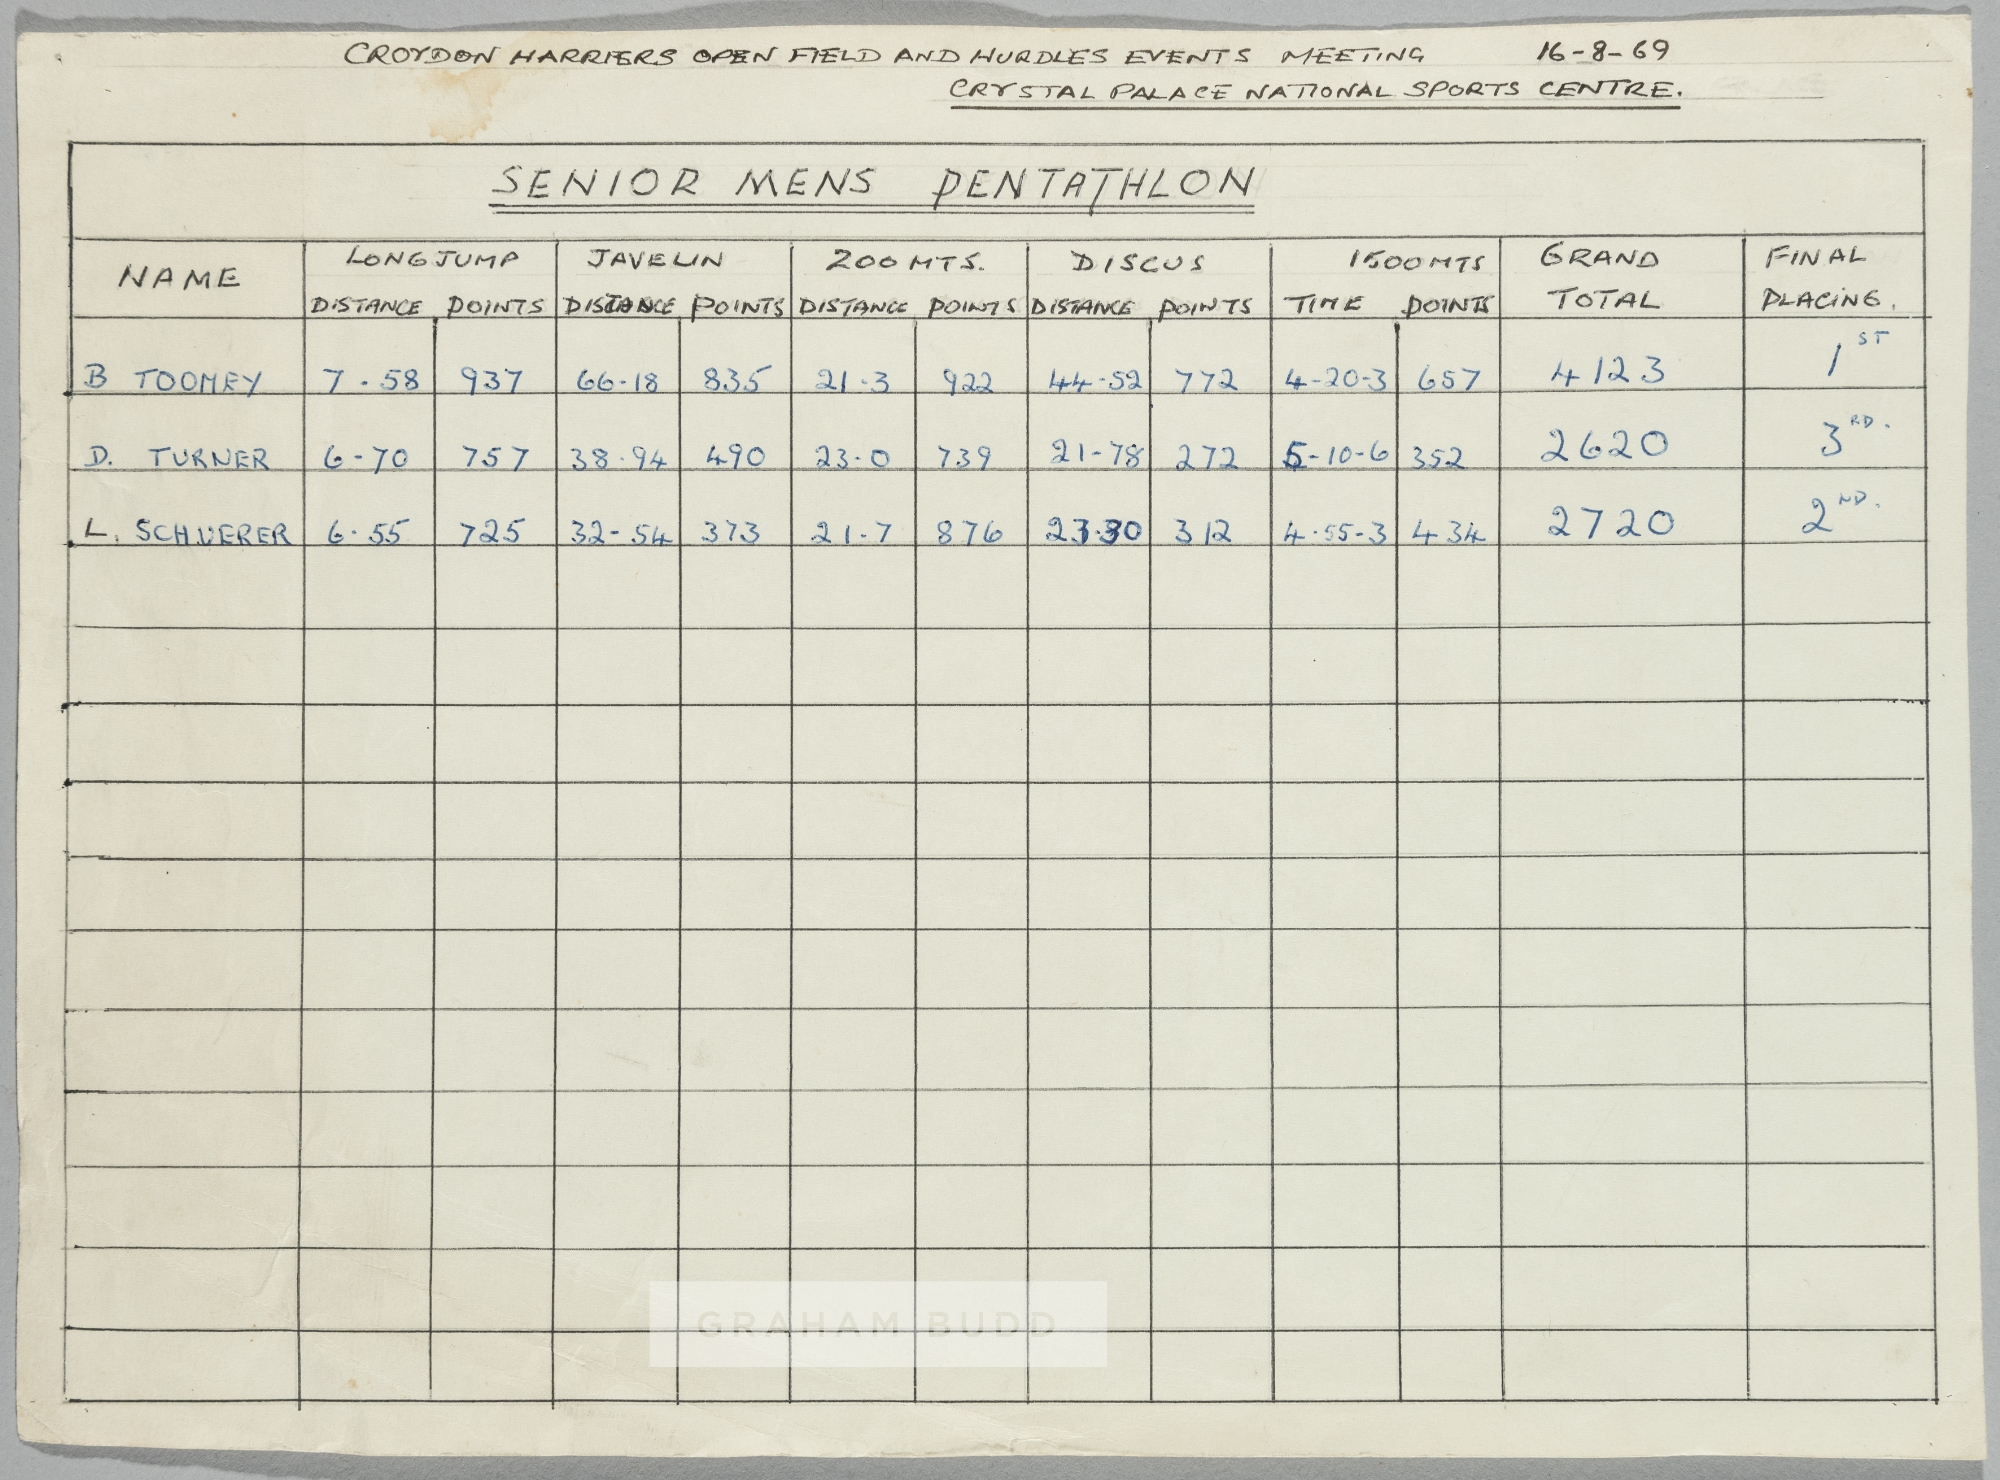 CROYDON HARRIERS OPEN FIELD AND HURDLES EVENTS MEETING 16-8-69
CRYSTAL PALACE NATIONAL SPORTS CENTRE.
SENIOR MENS PENTATHLON
NAME LONG JUMP JAVELIN 200 MTS. DISCUS 1500 MTS GRAND TOTAL FINAL PLACING.
DISTANCE POINTS DISTANCE POINTS DISTANCE POINTS DISTANCE POINTS TIME POINTS
B TOOMEY 7-58 937 66-18 835 21.3 922 44-52 772 4-20-3 657 4123 1ST
D. TURNER 6-70 757 38.94 490 23.0 739 21-78 272 5-10-6 352 2620 3RD.
L. SCHUERER 6.55 725 32-54 373 21.7 876 23.30 312 4.55-3 434 2720 2ND.
GRAHAM BUDD